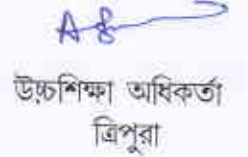 উচ্চশিক্ষা অধিকর্তা
ত্রিপুরা